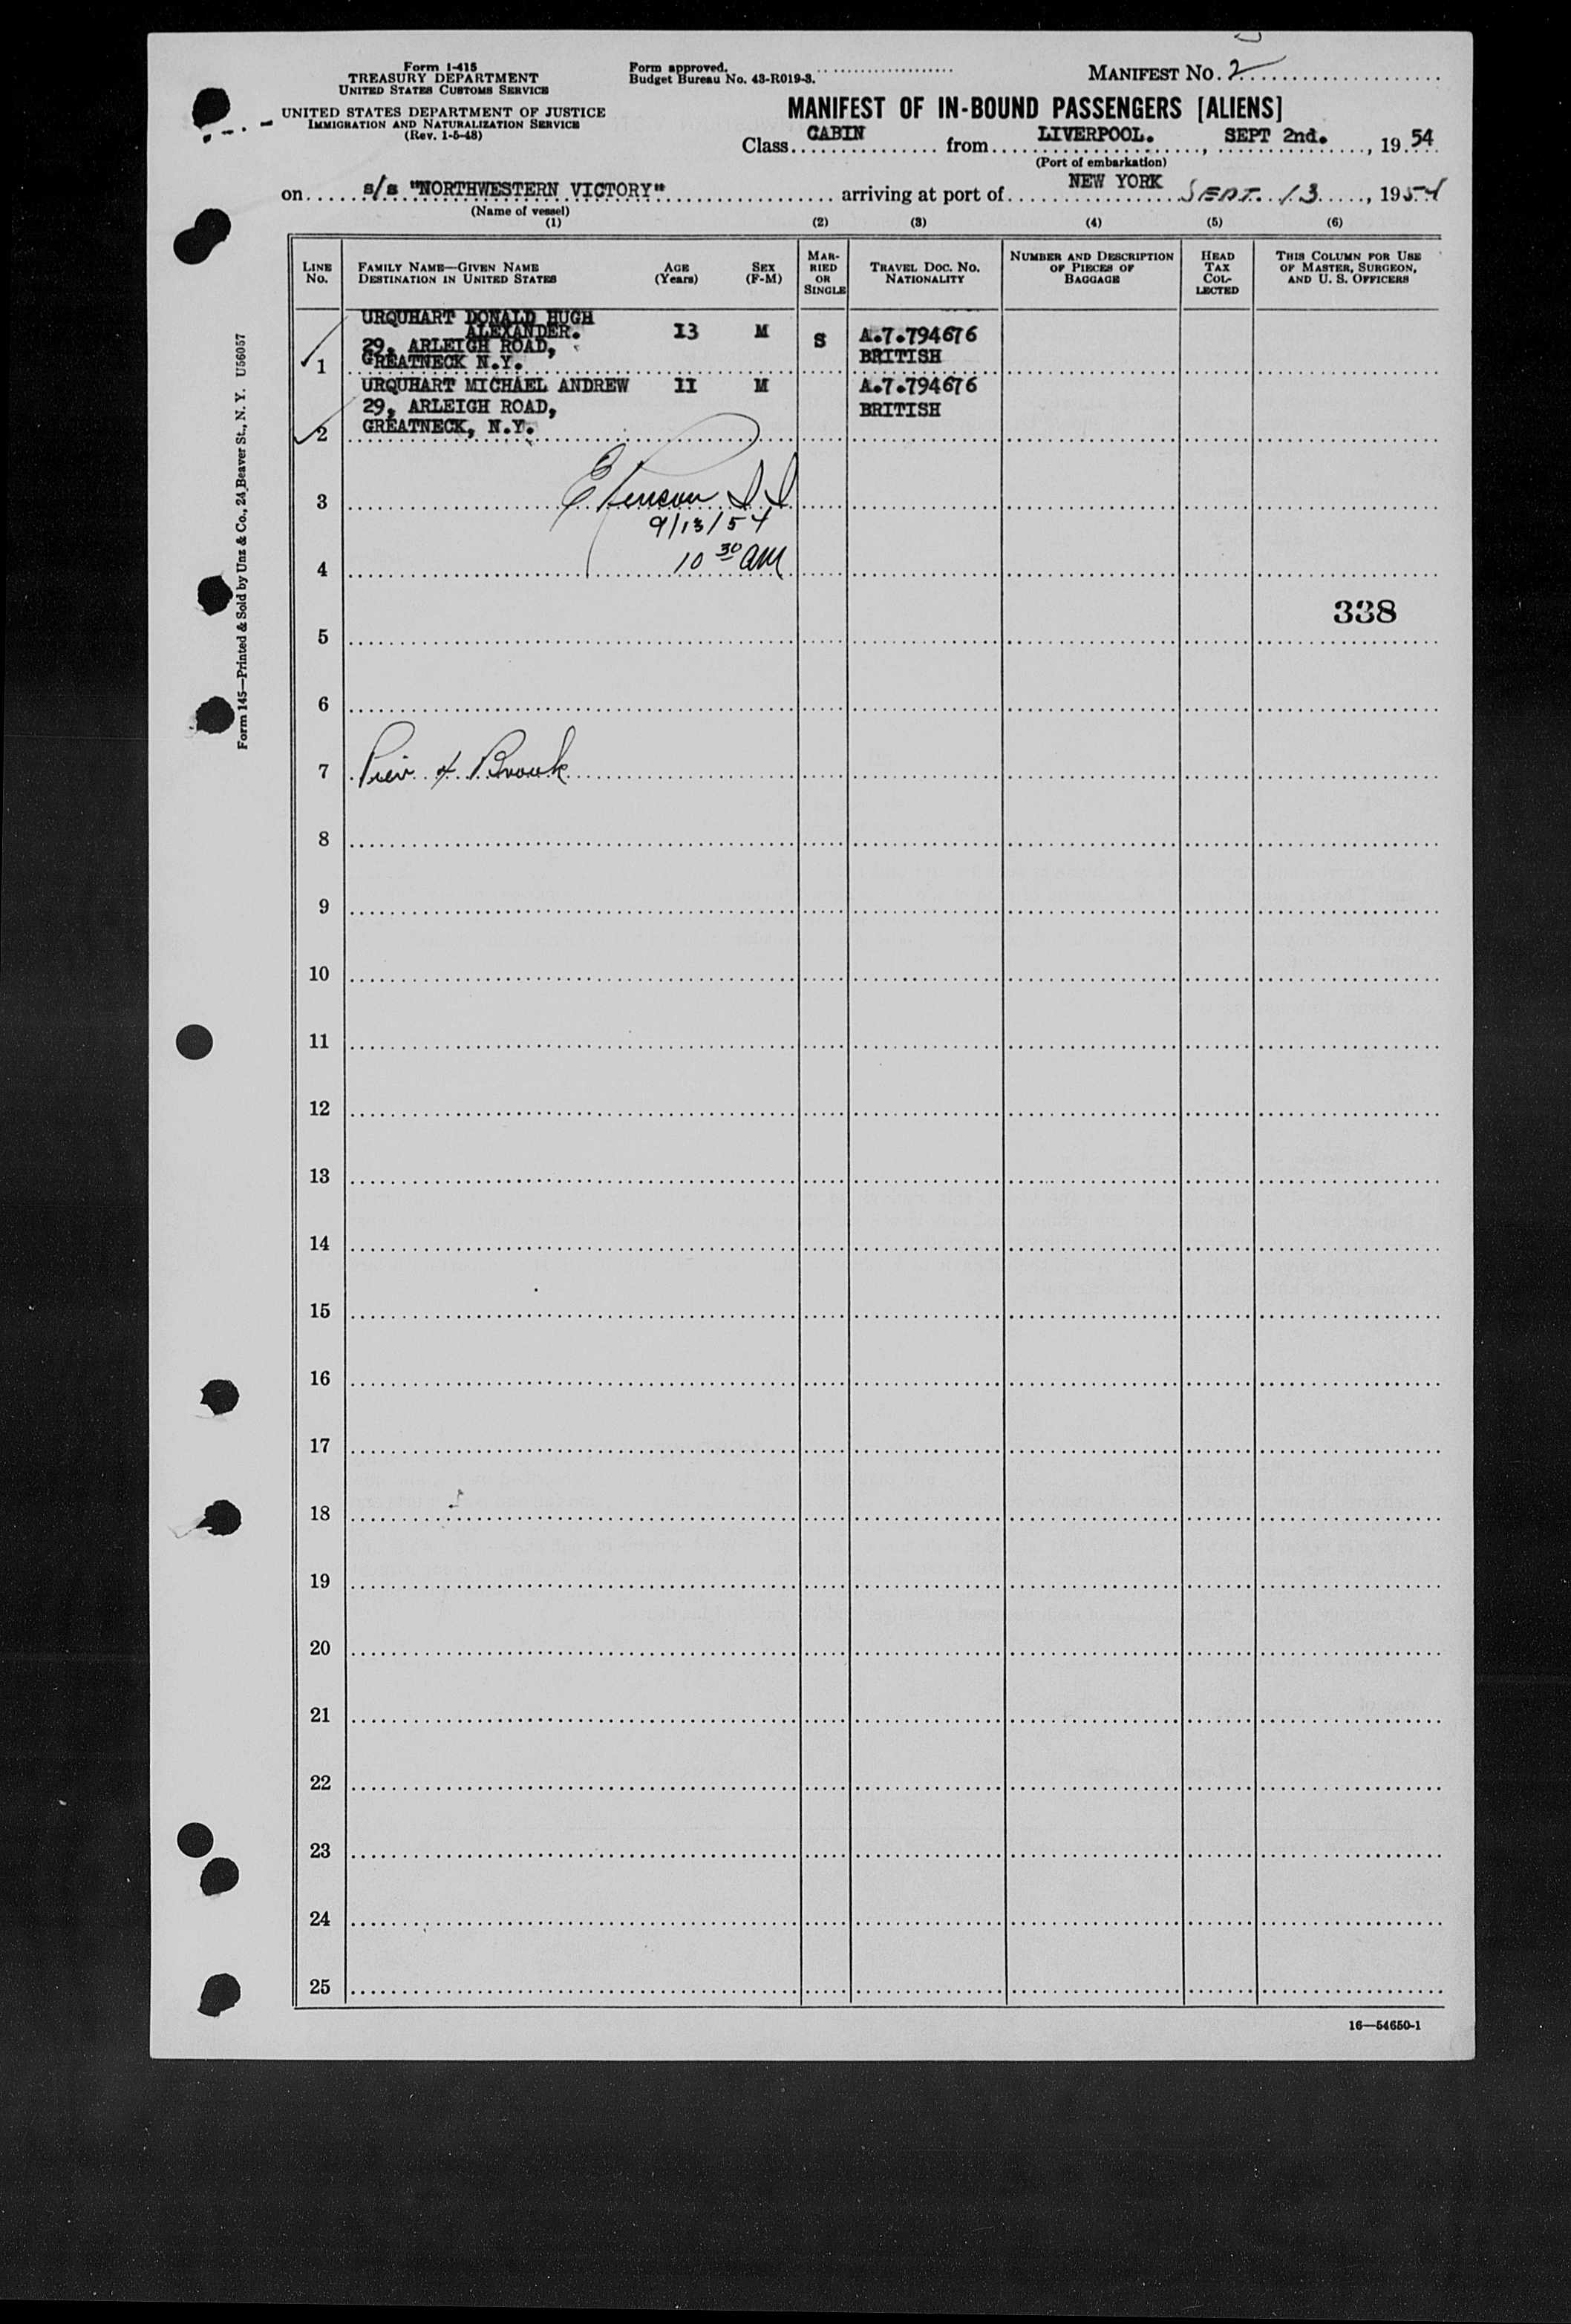 Form I-415
TREASURY DEPARTMENT
UNITED STATES CUSTOMS SERVICE
UNITED STATES DEPARTMENT OF JUSTICE
IMMIGRATION AND NATURALIZATION SERVICE
(Rev. 1-5-48)
Form approved.
Budget Bureau No. 43-R019-3.
MANIFEST NO. 2
MANIFEST OF IN-BOUND PASSENGERS [ALIENS]
Class CABIN from LIVERPOOL. , SEPT 2nd. , 19 54
(Port of embarkation)
on s/s "NORTHWESTERN VICTORY" arriving at port of NEW YORK SEPT. 13 , 1954
(Name of vessel)
(1) (2) (3) (4) (5) (6)
LINE NO.
FAMILY NAME—GIVEN NAME
DESTINATION IN UNITED STATES
AGE (Years)
SEX (F-M)
MARRIED OR SINGLE
TRAVEL DOC. NO.
NATIONALITY
NUMBER AND DESCRIPTION OF PIECES OF BAGGAGE
HEAD TAX COLLECTED
THIS COLUMN FOR USE OF MASTER, SURGEON, AND U. S. OFFICERS
URQUHART DONALD HUGH
ALEXANDER. I3 M S A.7.794676
29, ARLEIGH ROAD, BRITISH
1 GREATNECK N.Y.
URQUHART MICHAEL ANDREW II M A.7.794676
29, ARLEIGH ROAD, BRITISH
2 GREATNECK, N.Y.
3
9/13/54
4 10 30 AM
338
5
6
7 Pier 4 Brook
8
9
10
11
12
13
14
15
16
17
18
19
20
21
22
23
24
25
16—54650-1
Form 145—Printed & Sold by Unz & Co., 24 Beaver St., N. Y. U56057